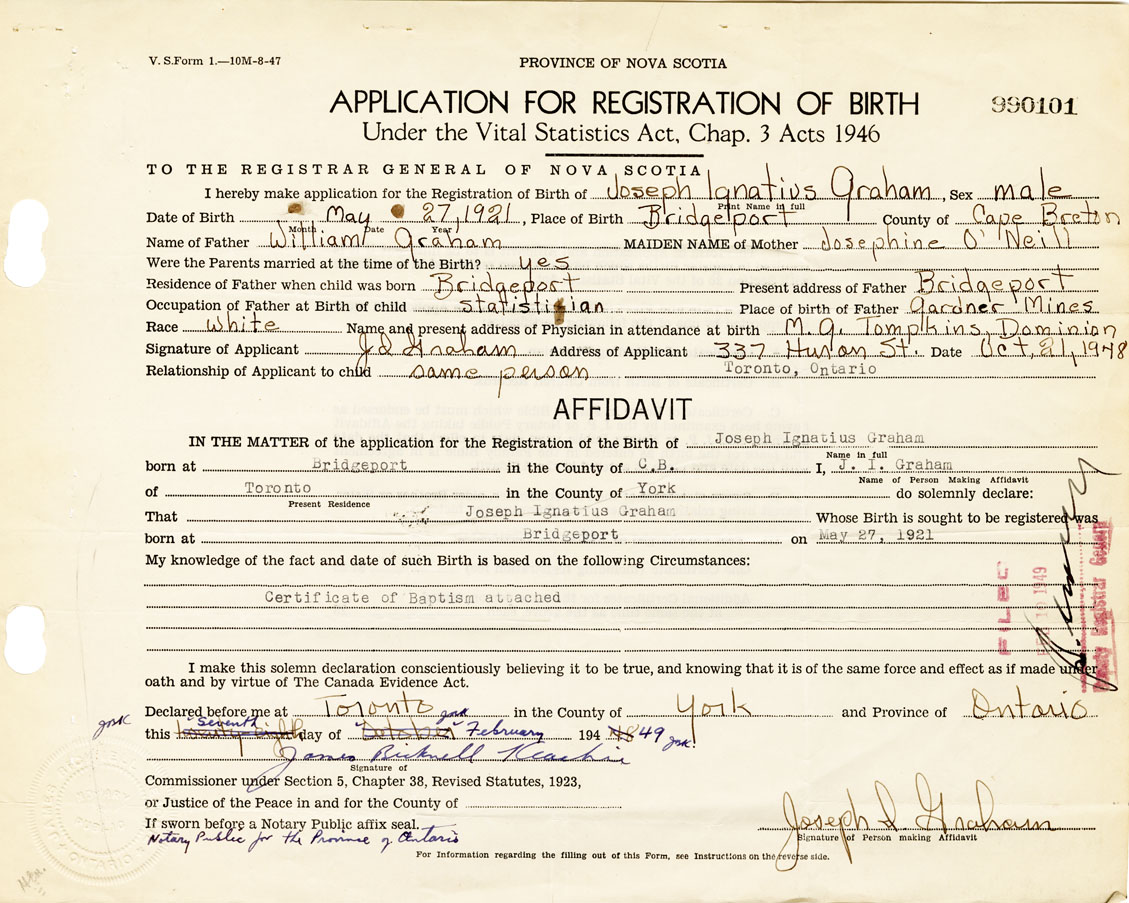 V. S.Form 1.—10M-8-47
PROVINCE OF NOVA SCOTIA
APPLICATION FOR REGISTRATION OF BIRTH
990101
Under the Vital Statistics Act, Chap. 3 Acts 1946
TO THE REGISTRAR GENERAL OF NOVA SCOTIA
I hereby make application for the Registration of Birth of Joseph Ignatius Graham, Sex male
Print Name in full
Date of Birth May 27, 1921, Place of Birth Bridgeport County of Cape Breton
Month Date Year
Name of Father William Graham MAIDEN NAME of Mother Josephine O'Neill
Were the Parents married at the time of the Birth? yes
Residence of Father when child was born Bridgeport Present address of Father Bridgeport
Occupation of Father at Birth of child statistician Place of birth of Father Gardner Mines
Race White Name and present address of Physician in attendance at birth M. G. Tompkins, Dominion
Signature of Applicant Graham Address of Applicant 337 Huron St. Date Oct, 21, 1948
Relationship of Applicant to child same person Toronto, Ontario
AFFIDAVIT
IN THE MATTER of the application for the Registration of the Birth of Joseph Ignatius Graham
Name in full
born at Bridgeport in the County of C.B. I, J. I. Graham
Name of Person Making Affidavit
of Toronto in the County of York do solemnly declare:
Present Residence
That Joseph Ignatius Graham Whose Birth is sought to be registered was
born at Bridgeport on May 27, 1921
My knowledge of the fact and date of such Birth is based on the following Circumstances:
Certificate of Baptism attached
FILED
10 1949
Deputy Registrar General
I make this solemn declaration conscientiously believing it to be true, and knowing that it is of the same force and effect as if made under
oath and by virtue of The Canada Evidence Act.
Declared before me at Toronto in the County of York and Province of Ontario
this twenty-eighth "Seventh" day of "October" "February 194 48 49
James Bicknell
Signature of
Commissioner under Section 5, Chapter 38, Revised Statutes, 1923,
or Justice of the Peace in and for the County of
If sworn before a Notary Public affix seal.
Notary Public for the Province of Ontario
Joseph I. Graham
Signature of Person making Affidavit
For Information regarding the filling out of this Form, see Instructions on the reverse side.